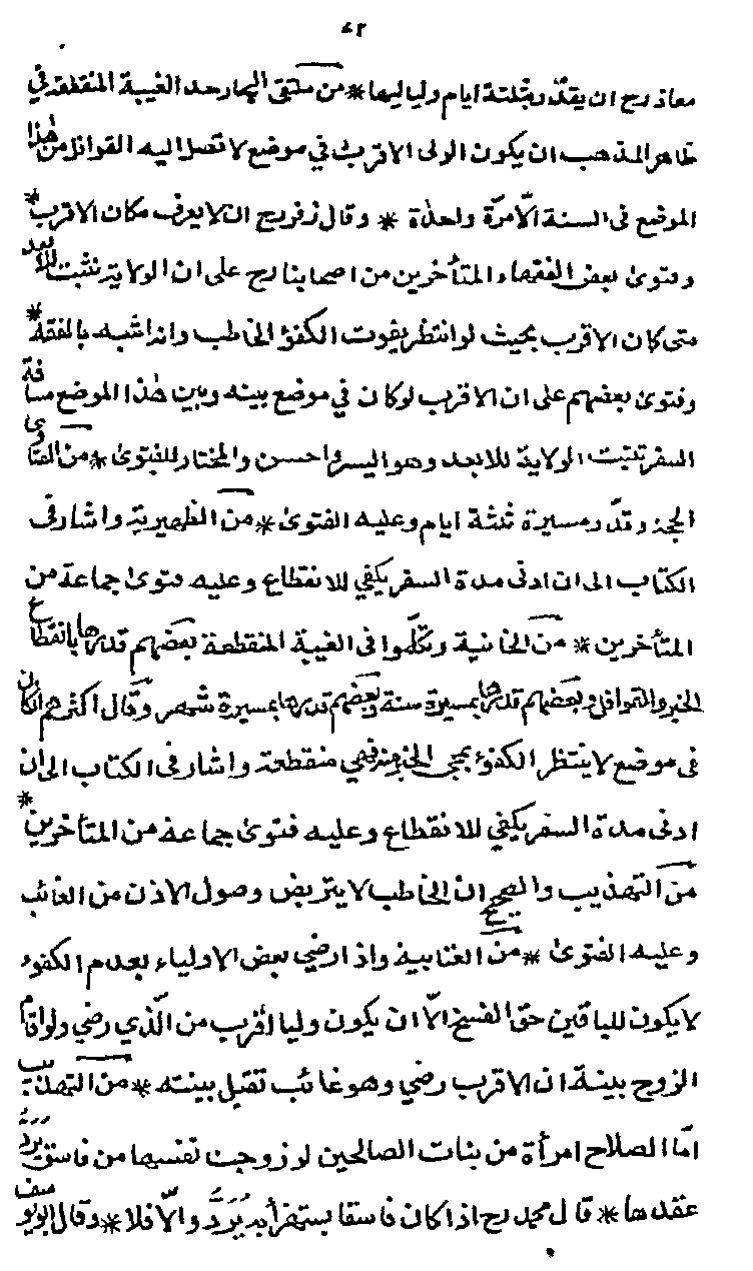 ٤٢
معاذ رح ان يقدر بثلثة ايام ولياليها * من ملتقى البحار حد الغيبة المنقطعة في
ظاهر المذهب ان يكون الولى الاقرب في موضع لا تصل اليه القوافل من هذا
الموضع فى السنة الّا مرّة واحدة * وقال زفر رح ان لا يعرف مكان الاقرب *
وفتوى بعض الفقهاء المتأخرين من اصحابنا رح على ان الولاية تثبت للابعد
متى كان الاقرب بحيث لو انتظر يفوت الكفؤ الخاطب وانه اشبه بالفقه *
وفتوى بعضهم على ان الاقرب لو كان في موضع بينه وبين هذا الموضع مسافة
السفر تثبت الولاية للابعد وهو اليسر واحسن والمختار للفتوى * من الفتاوى
الحجة وقدّر مسيرة ثلثة ايام وعليه الفتوى * من الظهيرية واشار فى
الكتاب الى ان ادنى مدة السفر يكفي للانقطاع وعليه فتوى جماعة من
المتأخرين * من الخانية وتكلّموا فى الغيبة المنقطعة بعضهم قدرها بانقطاع
الخبر والقوافل وبعضهم قدرها بمسيرة سنة وبعضهم قدرها بمسيرة شهر وقال اكثرهم ان كان
فى موضع لا ينتظر الكفوء بمجى الخبر منه فهي منقطعة واشار فى الكتاب الى ان
ادنى مدة السفر يكفي للانقطاع وعليه فتوى جماعة من المتأخرين *
من التهذيب والصحيح ان الخاطب لا يتربص وصول الاذن من الغائب
وعليه الفتوى * من العتابية واذا رضي بعض الاولياء بعدم الكفوء
لا يكون للباقين حق الفسخ الّا ان يكون وليا اقرب من الّذي رضي ولو اقام
الزوج بينة ان الاقرب رضي وهو غائب تقبل بينته * من التهذيب
امّا الصلاح امرأة من بنات الصالحين لو زوجت نفسها من فاسق يردّ
عقدها * قال محمد رح اذا كان فاسقا يستهزأ به يُرَدُّ والّا فلا * وقال ابو يوسف